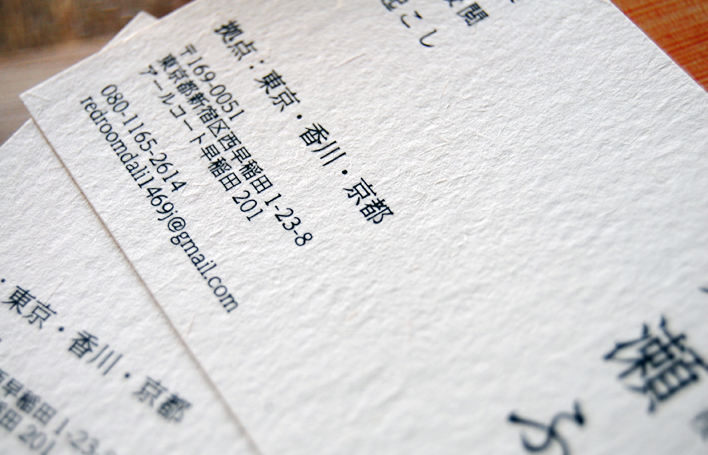 校閲
起こし
拠点：東京・香川・京都
〒169-0051
東京都新宿区西早稲田 1-23-8
アールコート早稲田 201
080-1165-2614
redroomdali1469j@gmail.com
瀬
ふ
・東京・香川・京都
西早稲田 1-23-8
早稲田 201